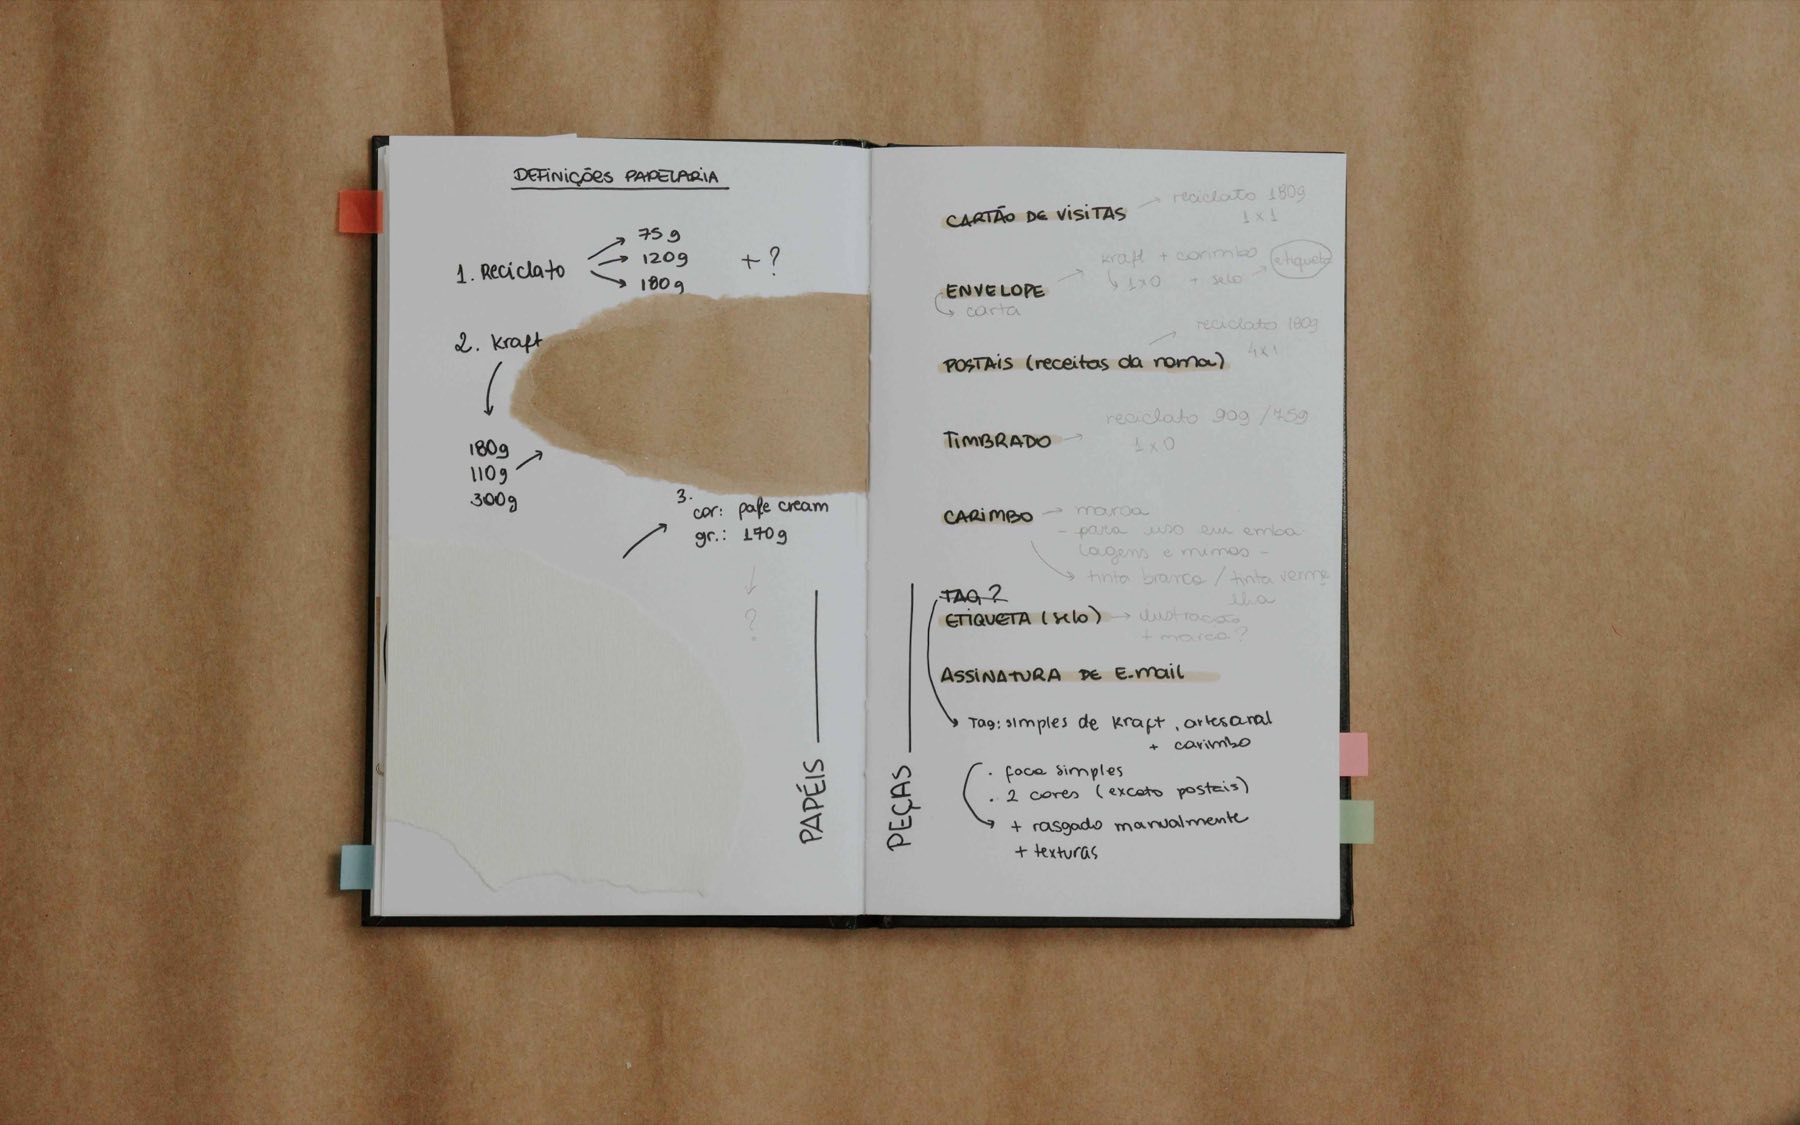 DEFINIÇÕES PAPELARIA
1. Reciclato
75g
120g
180g
+ ?
2. Kraft
180g
110g
300g
3.
cor: pale cream
gr.: 170g
?
PAPÉIS
CARTÃO DE VISITAS
reciclato 180g
1x1
ENVELOPE
carta
kraft + carimbo
1x0 + selo
etiqueta
POSTAIS (receitas da noma)
reciclato 180g
4x1
TIMBRADO
reciclato 90g / 75g
1x0
CARIMBO
marca
- para uso em emba
lagens e mimos -
tinta branca / tinta verme
lha
TAG?
ETIQUETA (selo)
+ marca?
ASSINATURA DE E-mail
Tag: simples de kraft, artesanal
+ carimbo
. faca simples
. 2 cores (exceto postais)
+ rasgado manualmente
+ texturas
PEÇAS